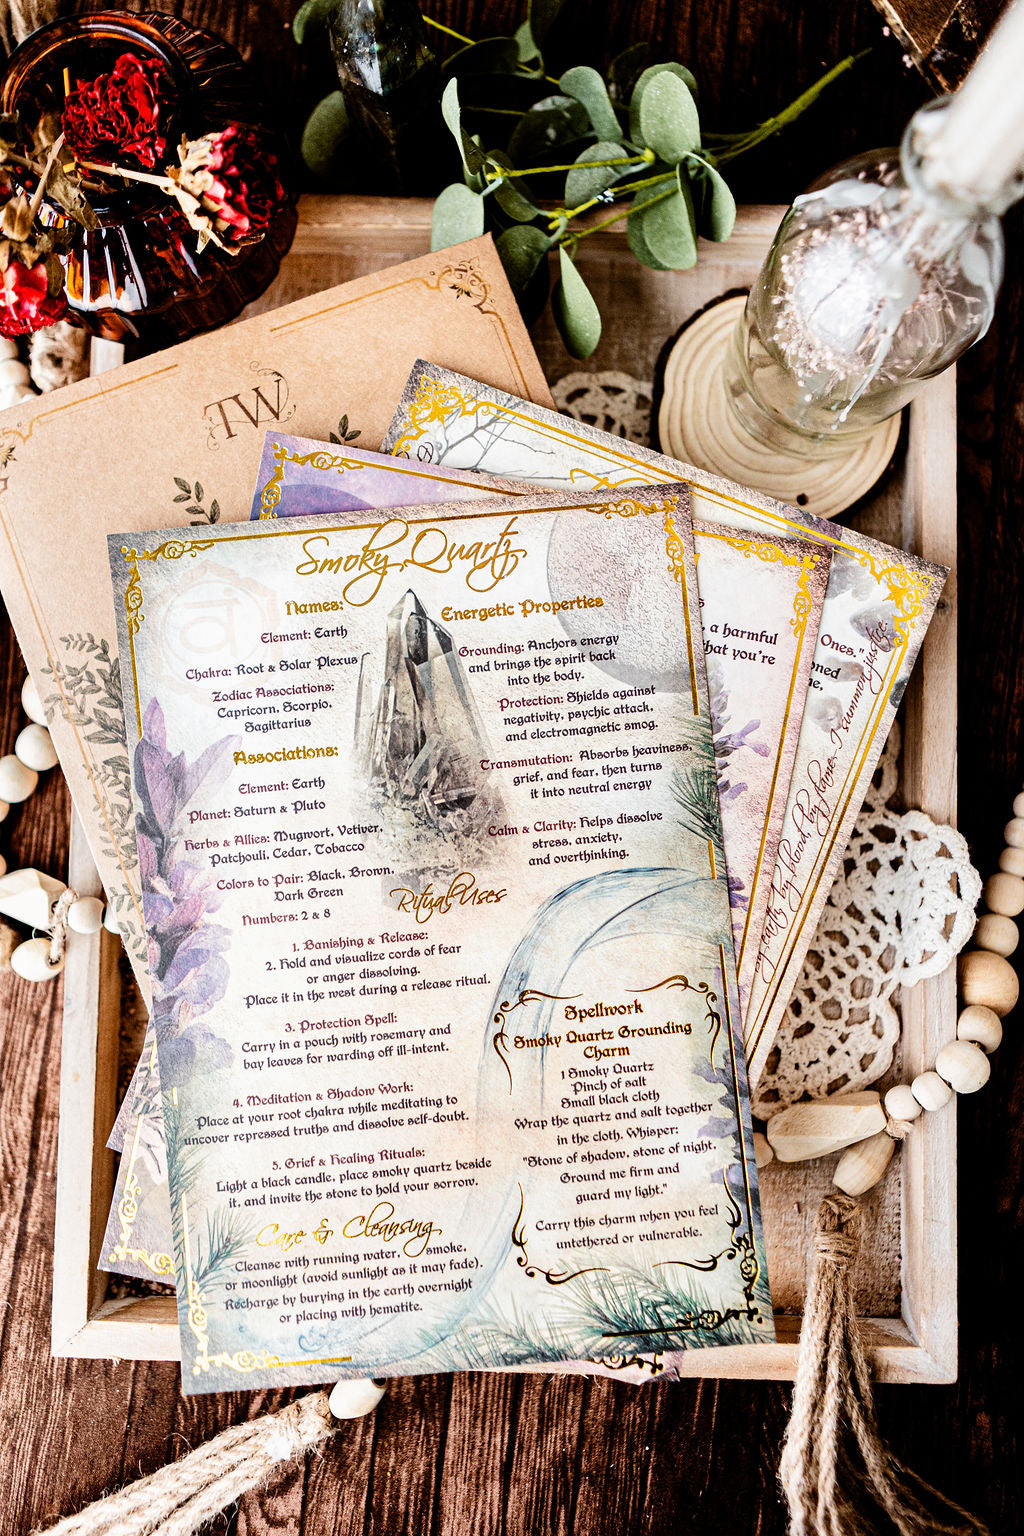 TW
Smoky Quartz
वं
Names:
Element: Earth
Chakra: Root & Solar Plexus
Zodiac Associations:
Capricorn, Scorpio,
Sagittarius
Associations:
Element: Earth
Planet: Saturn & Pluto
Herbs & Allies: Mugwort, Vetiver,
Patchouli, Cedar, Tobacco
Colors to Pair: Black, Brown,
Dark Green
Numbers: 2 & 8
Energetic Properties
Grounding: Anchors energy
and brings the spirit back
into the body.
Protection: Shields against
negativity, psychic attack,
and electromagnetic smog.
Transmutation: Absorbs heaviness,
grief, and fear, then turns
it into neutral energy
Calm & Clarity: Helps dissolve
stress, anxiety,
and overthinking.
Ritual Uses
1. Banishing & Release:
2. Hold and visualize cords of fear
or anger dissolving.
Place it in the west during a release ritual.
3. Protection Spell:
Carry in a pouch with rosemary and
bay leaves for warding off ill-intent.
4. Meditation & Shadow Work:
Place at your root chakra while meditating to
uncover repressed truths and dissolve self-doubt.
5. Grief & Healing Rituals:
Light a black candle, place smoky quartz beside
it, and invite the stone to hold your sorrow.
Care & Cleansing
Cleanse with running water, smoke,
or moonlight (avoid sunlight as it may fade).
Recharge by burying in the earth overnight
or placing with hematite.
Spellwork
Smoky Quartz Grounding
Charm
1 Smoky Quartz
Pinch of salt
Small black cloth
Wrap the quartz and salt together
in the cloth. Whisper:
"Stone of shadow, stone of night,
Ground me firm and
guard my light."
Carry this charm when you feel
untethered or vulnerable.
, a harmful
that you're
Ones."
by earth, by blood, by flame, I summon justice.